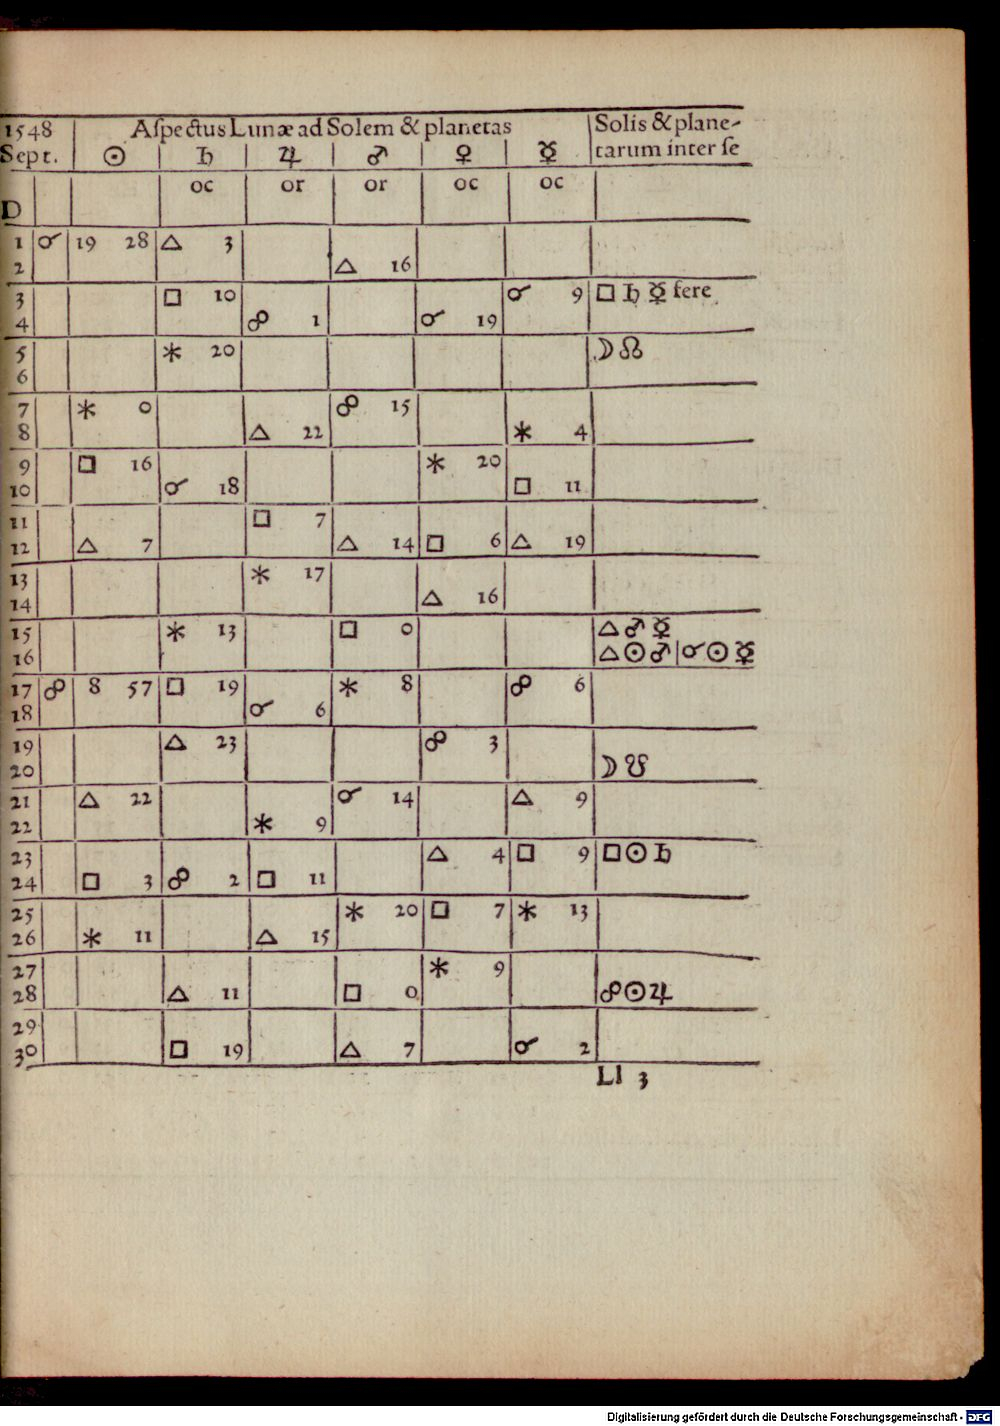 1548 Aſpectus Lunæ ad Solem & planetas Solis & plane-
Sept. ☉ ♄ ♃ ♂ ♀ ☿ tarum inter ſe
oc or or oc oc
D
1 ☌ 19 28 △ 3
2 △ 16
3 □ 10 ☌ 9 □ ♄ ☿ fere
4 ☍ 1 ☌ 19
5 ⚹ 20 ☽ ☊
6
7 ⚹ 0 ☍ 15
8 △ 22 ⚹ 4
9 □ 16 ⚹ 20
10 ☌ 18 □ 11
11 □ 7
12 △ 7 △ 14 □ 6 △ 19
13 ⚹ 17
14 △ 16
15 ⚹ 13 □ 0 △ ♂ ☿
16 △ ☉ ♂ | ☌ ☉ ☿
17 ☍ 8 57 □ 19 ⚹ 8 ☍ 6
18 ☌ 6
19 △ 23 ☍ 3
20 ☽ ☋
21 △ 22 ☌ 14 △ 9
22 ⚹ 9
23 △ 4 □ 9 □ ☉ ♄
24 □ 3 ☍ 2 □ 11
25 ⚹ 20 □ 7 ⚹ 13
26 ⚹ 11 △ 15
27 ⚹ 9
28 △ 11 □ 0 ☍ ☉ ♃
29
30 □ 19 △ 7 ☌ 2
Ll 3
Digitalisierung gefördert durch die Deutsche Forschungsgemeinschaft - DFG